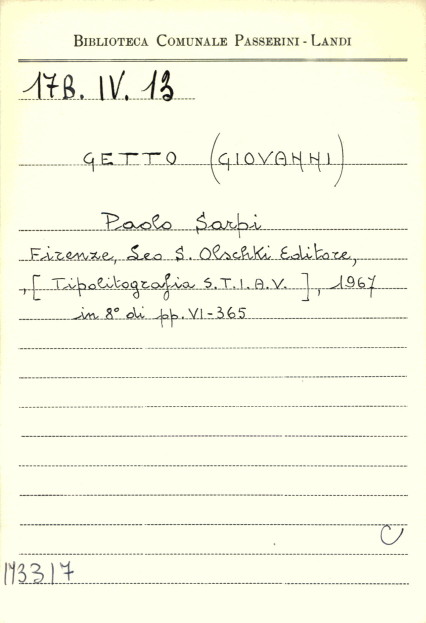 BIBLIOTECA COMUNALE PASSERINI - LANDI
17B. IV. 13
GETTO (GIOVANNI)
Paolo Sarpi
Firenze, Leo S. Olschki Editore,
,[ Tipolitografia S.T.I.A.V. ], 1967
in 8° di pp. VI-365
C
143317